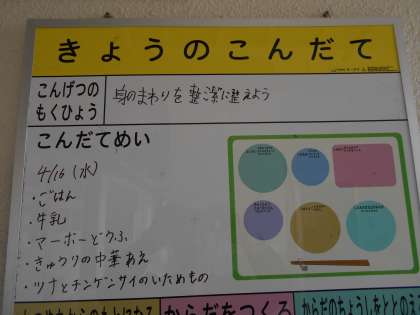 きょうのこんだて
こんげつの
もくひょう
身のまわりを整潔に整えよう
こんだてめい
4/16 (水)
・ごはん
・牛乳
・マーボーどうふ
・きゅうりの中華あえ
・ツナとチンゲンサイのいためもの
からだをつくる
からだのちょうしをととのえ